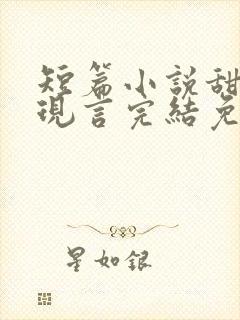 短篇小説甜
現言完結免
星如銀